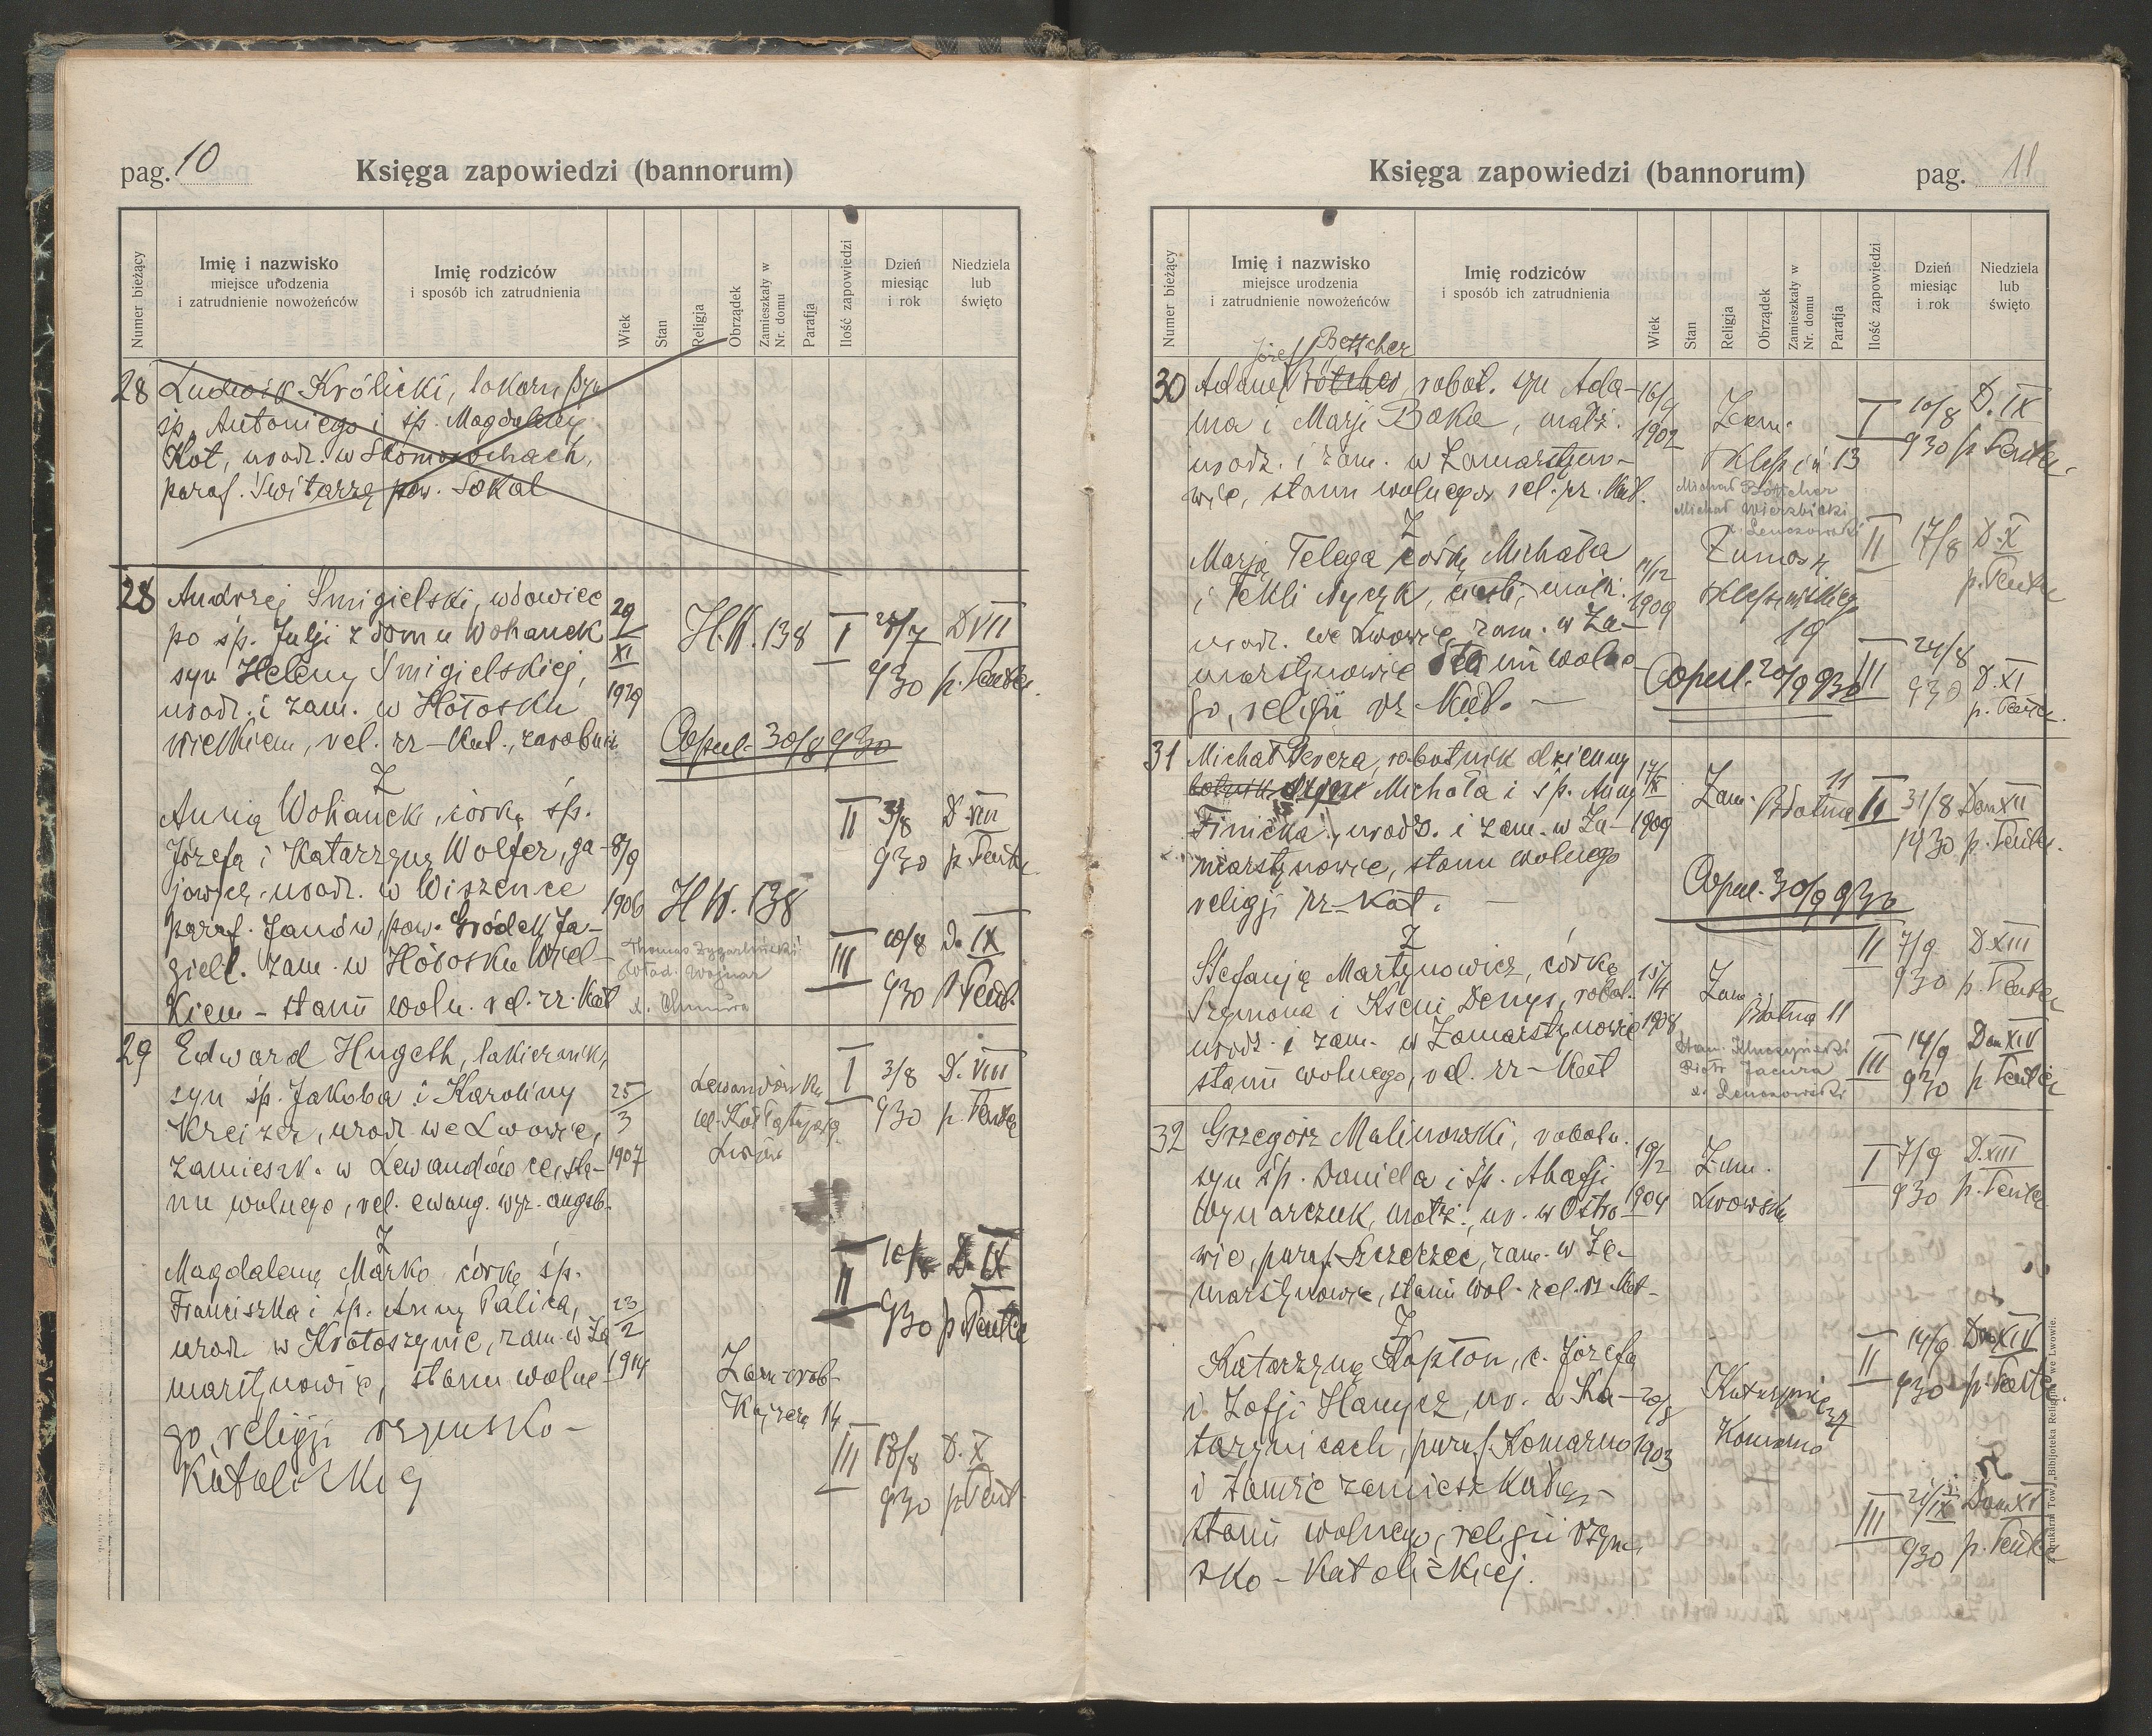 pag. 10
Księga zapowiedzi (bannorum)
Numer bieżący
Imię i nazwisko
miejsce urodzenia
i zatrudnienie nowożeńców
Imię rodziców
i sposób ich zatrudnienia
Wiek
Stan
Religja
Obrządek
Zamieszkały w
Nr. domu
Parafja
Ilość zapowiedzi
Dzień
miesiąc
i rok
Niedziela
lub
święto
28 Ludwik Królicki,
śp. Antoniego i śp. Magdaleny
Kot, urodz. w
paraf. Switarzę pow. Sokal
28 Andrzej Smigielski, wdowiec
po śp. Julji z domu Wohanek
syn Heleny Smigielskiej,
urodz. i zam. w Hołosku
Wielkiem, rel. rz-Kat.,
29
XI
1929
H.W. 138
I 27/7 D VII
930 p. Pentec.
Copul. 30/8 930
Z
Annią Wohanek, córką śp.
Józefa i Katarzyny Wolfer, ga-
jowych, urodz. w Wiszence
paraf. Janów, pow. Gródek Ja-
giell. zam. w Hołosku Wiel-
kiem - stanu woln. rel. rz. Kat
8/9
1906
H W. 138
Wład. Wojnar
II 3/8 D VIII
930 p. Pentec.
III 10/8 D. IX
930 p. Pent.
29 Edward Hugeth, lakiernik,
syn śp. Jakóba i Karoliny
Kreizer, urodz. we Lwowie,
zamieszk. w Lewandówce, sta-
nu wolnego, rel. ewang. wyz. augsb.
25
3
1907
Lewandówka
ul. Kołłątaja
Lwów
I 3/8 D. VIII
930 p. Pentec
Z
Magdaleną Marko córką śp.
Franciszka i śp. Anny Palica,
urodz w Krotoszynie, zam. w Za
marstynowie, stanu wolne-
go, religji rzymsko-
Katolickiej
23
2
1914
Zamarst.
14
II 10/8 D. IX
930 p. Pentec
III 18/8 D. X
930 p. Pent.
Księga zapowiedzi (bannorum)
pag. 11
Numer bieżący
Imię i nazwisko
miejsce urodzenia
i zatrudnienie nowożeńców
Imię rodziców
i sposób ich zatrudnienia
Wiek
Stan
Religja
Obrządek
Zamieszkały w
Nr. domu
Parafja
Ilość zapowiedzi
Dzień
miesiąc
i rok
Niedziela
lub
święto
Józef Bettcher
30 Adam robot. syn Ada-
ma i Marji Baka, małż.
urodz. i zam. w Zamarstyno-
wie, stanu wolnego rel. rz. Kat.
1902
13
Michał Böttcher
Michał Wierzbicki
I 10/8 D. IX
930 p. Pentec.
Z
Marją Telega córką Michała
i Tekli Nyczyk, cieśli, małż.
urodz. we Lwowie, zam. w Za-
marstynowie stanu wolne-
go, religii rz-Kat.
11/12
1909
19
Copul. 20/9 930
II 17/8 D. X
p. Pentec
III 24/8 D. XI
930 p. Pentec.
31 Michał Dercza, robotnik dzienny
syn Michała i śp. Anny
Finicka, urodz. i zam. w Za-
marstynowie, stanu wolnego
religji rz-Kat.
17/IX
1909
Zam. Błotna 11
I 31/8 Dom XII
1930 p. Pentec.
Copul. 30/9 930
Z
Stefanją Martynowicz, córką
Szymona i Kseni Denys, robot.
urodz. i zam. w Zamarstynowie
stanu wolnego, rel. rz-Kat
1908
Zam.
Błotna 11
Piotr Jacura
II 7/9 D XIII
930 p. Pentec
III 14/9 Dom XIV
930 p Pentec
32 Grzegorz Malinowski, robotn.
syn śp. Daniela i śp. Ahafji
Wynarczuk, małż., ur. w Ostro-
wie, paraf. Szczerzec, zam. w Za-
marstynowie, stanu wol. rel. rz Kat-
19/2
1904
Zam.
Lwowska
I 7/9 D. XIII
930 p. Pentec
Z
Katarzyną Kapłon, c. Józefa
i Zofji Hamycz, ur. w Ka-
tarynicach, paraf. Komarno
i tamże zamieszkałą
stanu wolnego, religii rzym-
sko-Katolickiej.
20/8
1903
Katarynice
Komarno
II 14/9 Dom XIV
930 p. Pentec
III 21/IX Dom XV
930 p. Pentec
Z drukarni Tow. „Bibljoteka Religijna” we Lwowie.